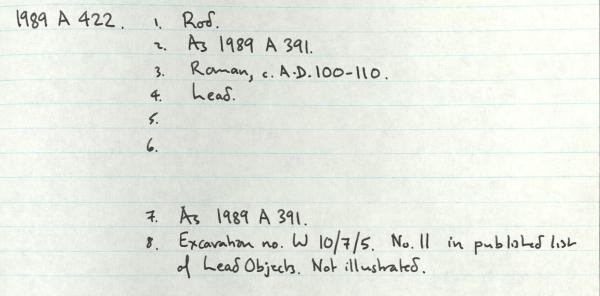 1989 A 422. 1. Rod.
2. As 1989 A 391.
3. Roman, c. A.D. 100-110.
4. Lead.
5.
6.
7. As 1989 A 391.
8. Excavation no. W 10/7/5. No. 11 in published list
of Lead Objects. Not illustrated.